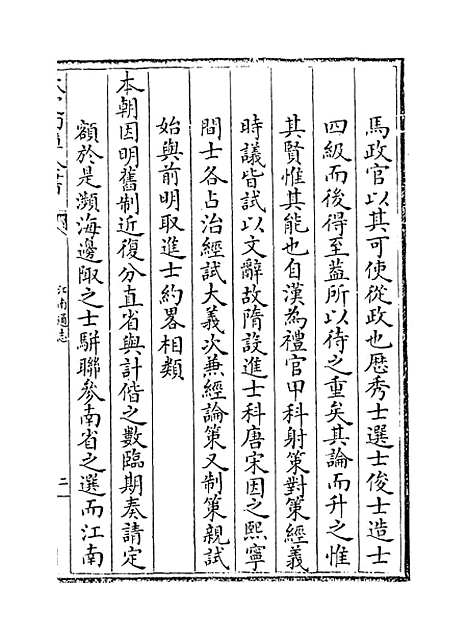 馬政官以其可使從政也歴秀士選士俊士造士
四級而後得至葢所以待之重矣其論而升之惟
其賢惟其能也自漢為禮官甲科射策對策經義
時議皆試以文辭故隋設進士科唐宋因之熙寧
間士各占治經試大義次兼經論策又制策親試
始與前明取進士約畧相類
本朝因明舊制近復分直省與計偕之數臨期奏請定
額於是瀕海邊陬之士駢聯參南省之選而江南
江南通志
二